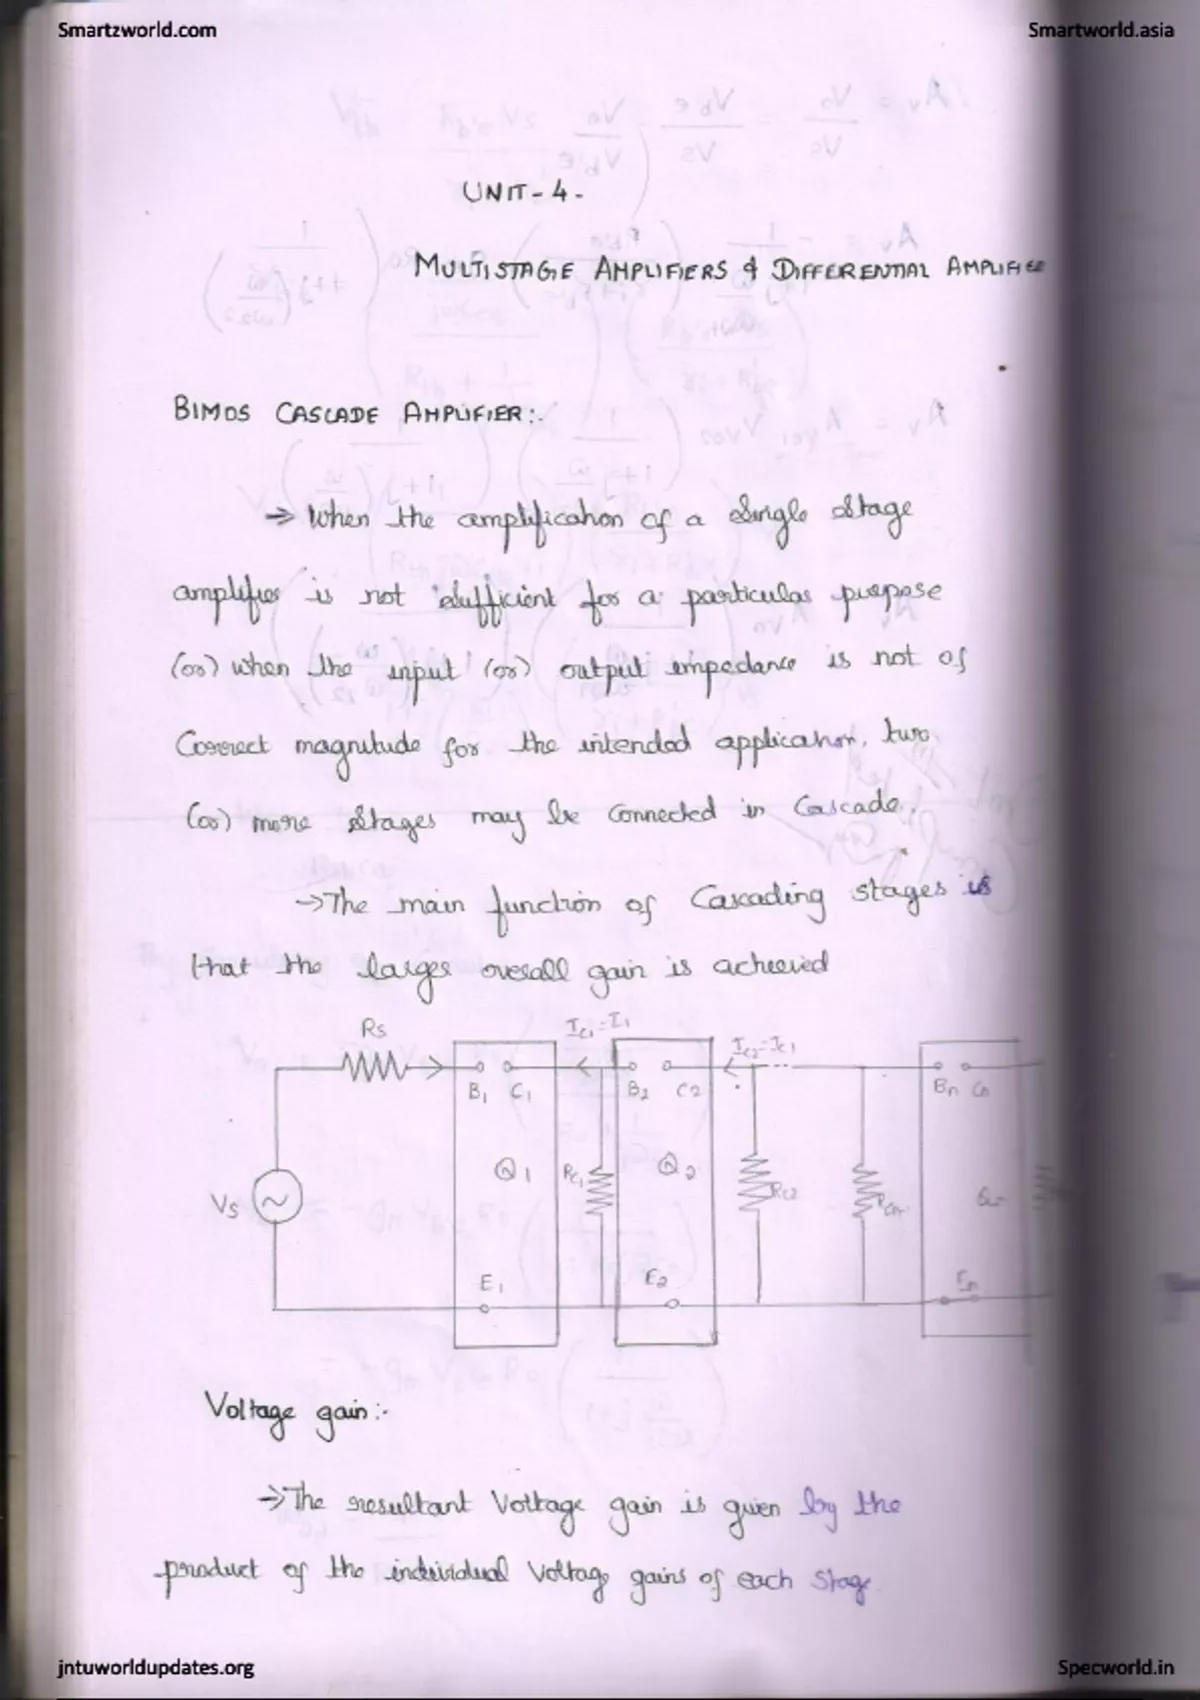 Smartzworld.com
Smartworld.asia
UNIT-4-
MULTISTAGE AMPLIFIERS & DIFFERENTIAL AMPLIFIER
BIMOS CASCADE AMPLIFIER:-
→ When the amplification of a single stage
amplifier is not sufficient for a particular purpose
(or) when the input (or) output impedance is not of
Correct magnitude for the intended application, two
(or) more stages may be connected in Cascade.
→The main function of Cascading stages is
that the larger overall gain is acheeived
Rs
Ic1=I1
Ic2=Ic1
B1 C1
B2 C2
Bn Cn
Q1
Rc1
Q2
Rc2
Vs
E1
E2
En
Voltage gain:-
→The resultant Voltage gain is given by the
product of the individual Voltage gains of each stage.
jntuworldupdates.org
Specworld.in